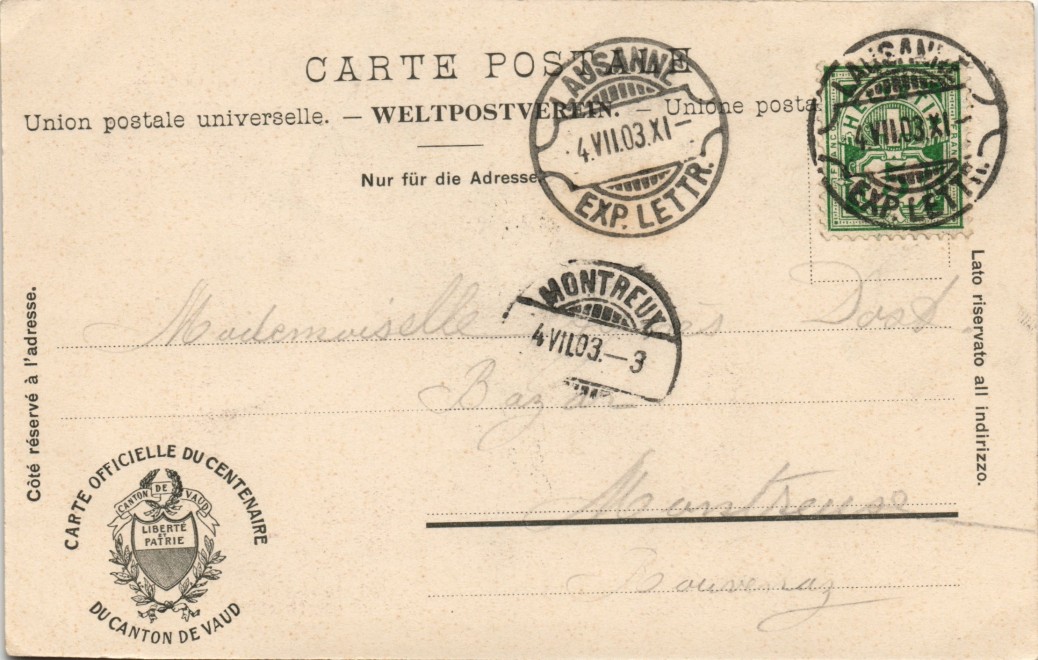 CARTE POSTALE
Union postale universelle. — WELTPOSTVEREIN. — Unione posta
Nur für die Adresse
LAUSANNE
4.VII.03.XI—
EXP. LETTR.
LAUSANNE
4.VII.03.XI—
EXP. LETTR.
MONTREUX
4.VII.03.—3
Côté réservé à l'adresse.
Lato riservato all indirizzo.
Mademoiselle Dost
Bazar
Montreux
Bouveraz
CARTE OFFICIELLE DU CENTENAIRE
DU CANTON DE VAUD
CANTON DE VAUD
LIBERTÉ
ET
PATRIE